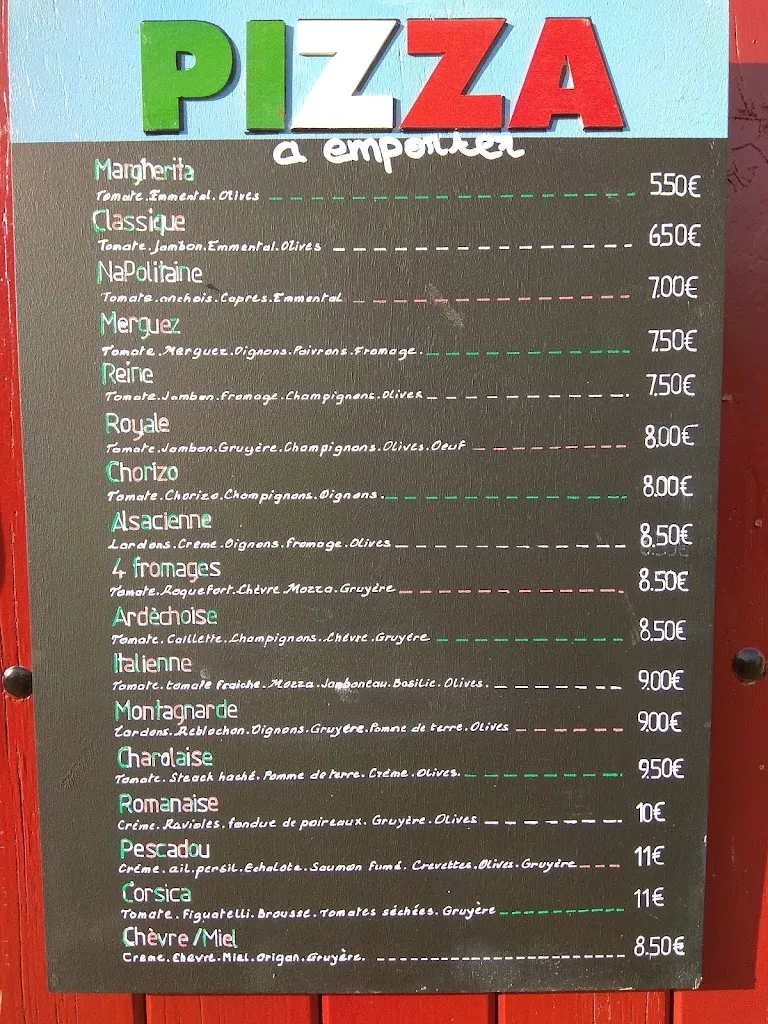 PIZZA
a emporter
Margherita
Tomate.Emmental.Olives 5.50€
Classique
Tomate.Jambon.Emmental.Olives 6.50€
NaPolitaine
Tomate.anchois.Capres.Emmental 7.00€
Merguez
Tomate.Merguez.Oignons.Poivrons.Fromage. 7.50€
Reine
Tomate.Jambon.Fromage.Champignons.Olives 7.50€
Royale
Tomate.Jambon.Gruyère.Champignons.Olives.Oeuf 8.00€
Chorizo
Tomate.Chorizo.Champignons.Oignons. 8.00€
Alsacienne
Lardons.Crème.Oignons.Fromage.Olives 8.50€
4 fromages
Tomate.Roquefort.Chèvre.Mozza.Gruyère 8.50€
Ardèchoise
Tomate.Caillette.Champignons.Chèvre.Gruyère 8.50€
Italienne
Tomate.tomate fraiche.Mozza.Jamboneau.Basilic.Olives. 9.00€
Montagnarde
Lardons.Reblochon.Oignons.Gruyère.Pomme de terre.Olives 9.00€
Charolaise
Tomate.Steack haché.Pomme de terre.Crème.Olives. 9.50€
Romanaise
Crème.Ravioles.fondue de poireaux.Gruyère.Olives 10€
Pescadou
Crème.ail.persil.Echalote.Saumon fumé.Crevettes.Olives.Gruyère 11€
Corsica
Tomate.Figuatelli.Brousse.Tomates séchées.Gruyère 11€
Chèvre/Miel
Creme.Chevre.Miel.Origan.Gruyère. 8.50€